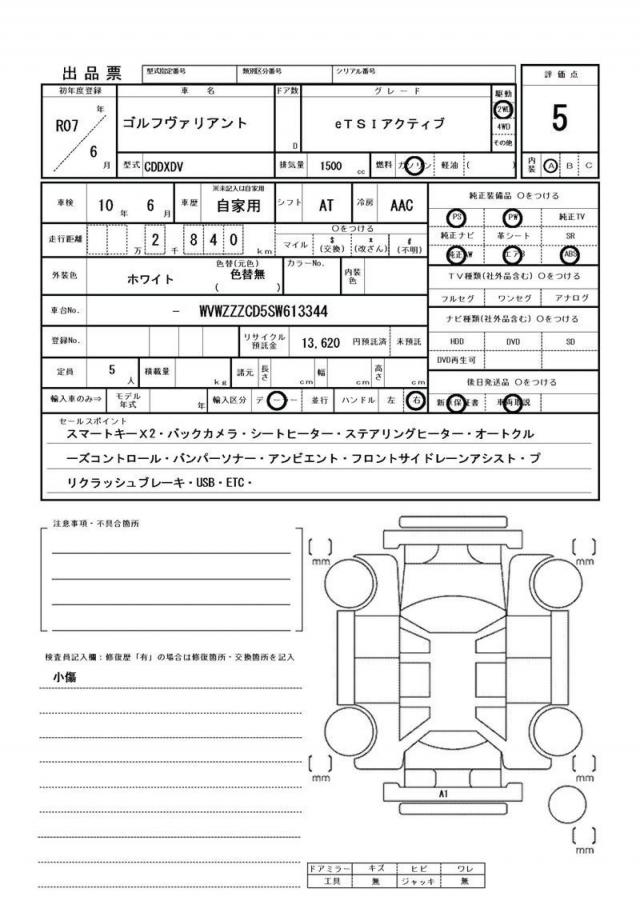 出品票 型式指定番号 類別区分番号 シリアル番号
評価点
5
初年度登録 車名 ドア数 グレード 駆動
R07 年 6 月 ゴルフヴァリアント D eTSIアクティブ 2WD
4WD
その他
型式 CDDXDV 排気量 1500 cc 燃料 ガソリン 軽油 ( ) 内装 A B C
※未記入は自家用
車検 10 年 6 月 車歴 自家用 シフト AT 冷房 AAC
純正装備品 Oをつける
PS PW 純正TV
純正ナビ 革シート SR
純正AW エアB ABS
Oをつける
走行距離 万 2 千 8 4 0 km マイル $ (交換) x (改ざん) # (不明)
外装色 ホワイト 色替(元色) 色替無 ( ) カラーNo. 内装色
TV種類(社外品含む) Oをつける
フルセグ ワンセグ アナログ
車台No. − WVWZZZCD5SW613344
ナビ種類(社外品含む) Oをつける
HDD DVD SD
DVD再生可
登録No. リサイクル預託金 13,620 円預託済 未預託
定員 5 人 積載量 kg 諸元 長さ cm 幅 cm 高さ cm
後日発送品 Oをつける
輸入車のみ⇒ モデル年式 年 輸入区分 ディーラー 並行 ハンドル 左 右 新車保証書 車両取説
セールスポイント
スマートキーX2・バックカメラ・シートヒーター・ステアリングヒーター・オートクル
ーズコントロール・バンパーソナー・アンビエント・フロントサイドレーンアシスト・プ
リクラッシュブレーキ・USB・ETC・
注意事項・不具合箇所
[ ] mm
[ ] mm
検査員記入欄：修復歴「有」の場合は修復箇所・交換箇所を記入
小傷
[ ] mm
[ ] mm
A1
[ ] mm
ドアミラー キズ ヒビ ワレ
工具 無 ジャッキ 無